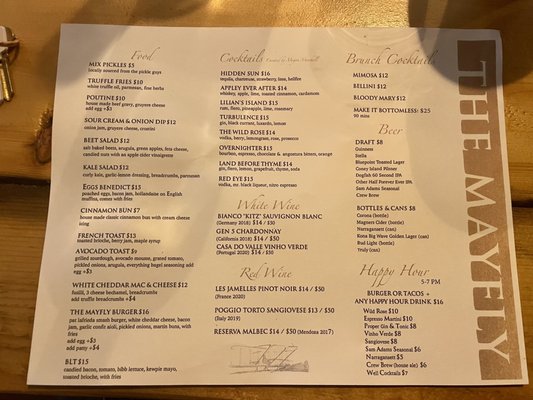 Food
MIX PICKLES $5
locally sourced from the pickle guys
TRUFFLE FRIES $10
white truffle oil, parmesan, fine herbs
POUTINE $10
house made beef gravy, gruyere cheese
add bacon +$3
SOUR CREAM & ONION DIP $12
onion jam, gruyere cheese, crostini
BEET SALAD $12
salt baked beets, arugula, green apples, feta cheese,
candied nuts with an apple cider vinaigrette
KALE SALAD $12
curly kale, garlic-lemon dressing, breadcrumbs, parmesan
EGGS BENEDICT $15
poached eggs, bacon jam, hollandaise on English
muffins, comes with fries
CINNAMON BUN $7
house made classic cinnamon bun with cream cheese
icing
FRENCH TOAST $13
toasted brioche, berry jam, maple syrup
AVOCADO TOAST $9
grilled sourdough, avocado mousse, grated tomato,
pickled onions, arugula, everything bagel seasoning add
egg +$3
WHITE CHEDDAR MAC & CHEESE $12
fusilli, 3 cheese bechamel, breadcrumbs
add truffle breadcrumbs +$4
THE MAYFLY BURGER $16
pat lafrieda smash burger, white cheddar cheese, bacon
jam, garlic confit aioli, pickled onions, martin buns, with
fries
add egg +$3
add patty +$4
BLT $15
candied bacon, tomato, bibb lettuce, kewpie mayo,
toasted brioche, with fries
Cocktails
HIDDEN SUN $16
tequila, chartreuse, strawberry, lime, hellfire
APPLEY EVER AFTER $14
whiskey, apple, lime, toasted cinnamon, cardamom
LILIAN'S ISLAND $15
rum, fino, pineapple, lime, rosemary
TURBULENCE $15
gin, black currant, luxardo, lemon
THE WILD ROSE $14
vodka, berry, lemongrass, rose, prosecco
OVERNIGHTER $15
bourbon, espresso, chocolate & angostura bitters, orange
LAND BEFORE THYME $14
gin, fiero, lemon, grapefruit, thyme, soda
RED EYE $15
vodka, mr. black liqueur, nitro espresso
White Wine
BIANCO "KITZ' SAUVIGNON BLANC
(Germany 2018) $14 / $50
GEN 5 CHARDONNAY
(California 2018) $14 / $50
CASA DO VALLE VINHO VERDE
(Portugal 2020) $14 / $50
Red Wine
LES JAMELLES PINOT NOIR $14 / $50
(France 2020)
POGGIO TORTO SANGIOVESE $13 / $50
(Italy 2019)
RESERVA MALBEC $14 / $50 (Mendoza 2017)
Brunch Cocktails
MIMOSA $12
BELLINI $12
BLOODY MARY $12
MAKE IT BOTTOMLESS: $25
90 mins
Beer
DRAFT $8
Guinness
Stella
Bluepoint Toasted Lager
Coney Island Pilsner
Dogfish 60 Second IPA
Other Half Forever Ever IPA
Sam Adams Seasonal
Crew Brew
BOTTLES & CANS $8
Corona (bottle)
Magners Cider (bottle)
Narragansett (can)
Kona Big Wave Golden Lager (can)
Bud Light (bottle)
Truly (can)
Happy Hour
5-7 PM
BURGER OR TACOS +
ANY HAPPY HOUR DRINK $16
Wild Rose $10
Espresso Martini $10
Proper Gin & Tonic $8
Vinho Verde $8
Sangiovese $8
Sam Adams Seasonal $6
Narragansett $5
Crew Brew (house ale) $6
Well Cocktails $7
THE MAYFLY